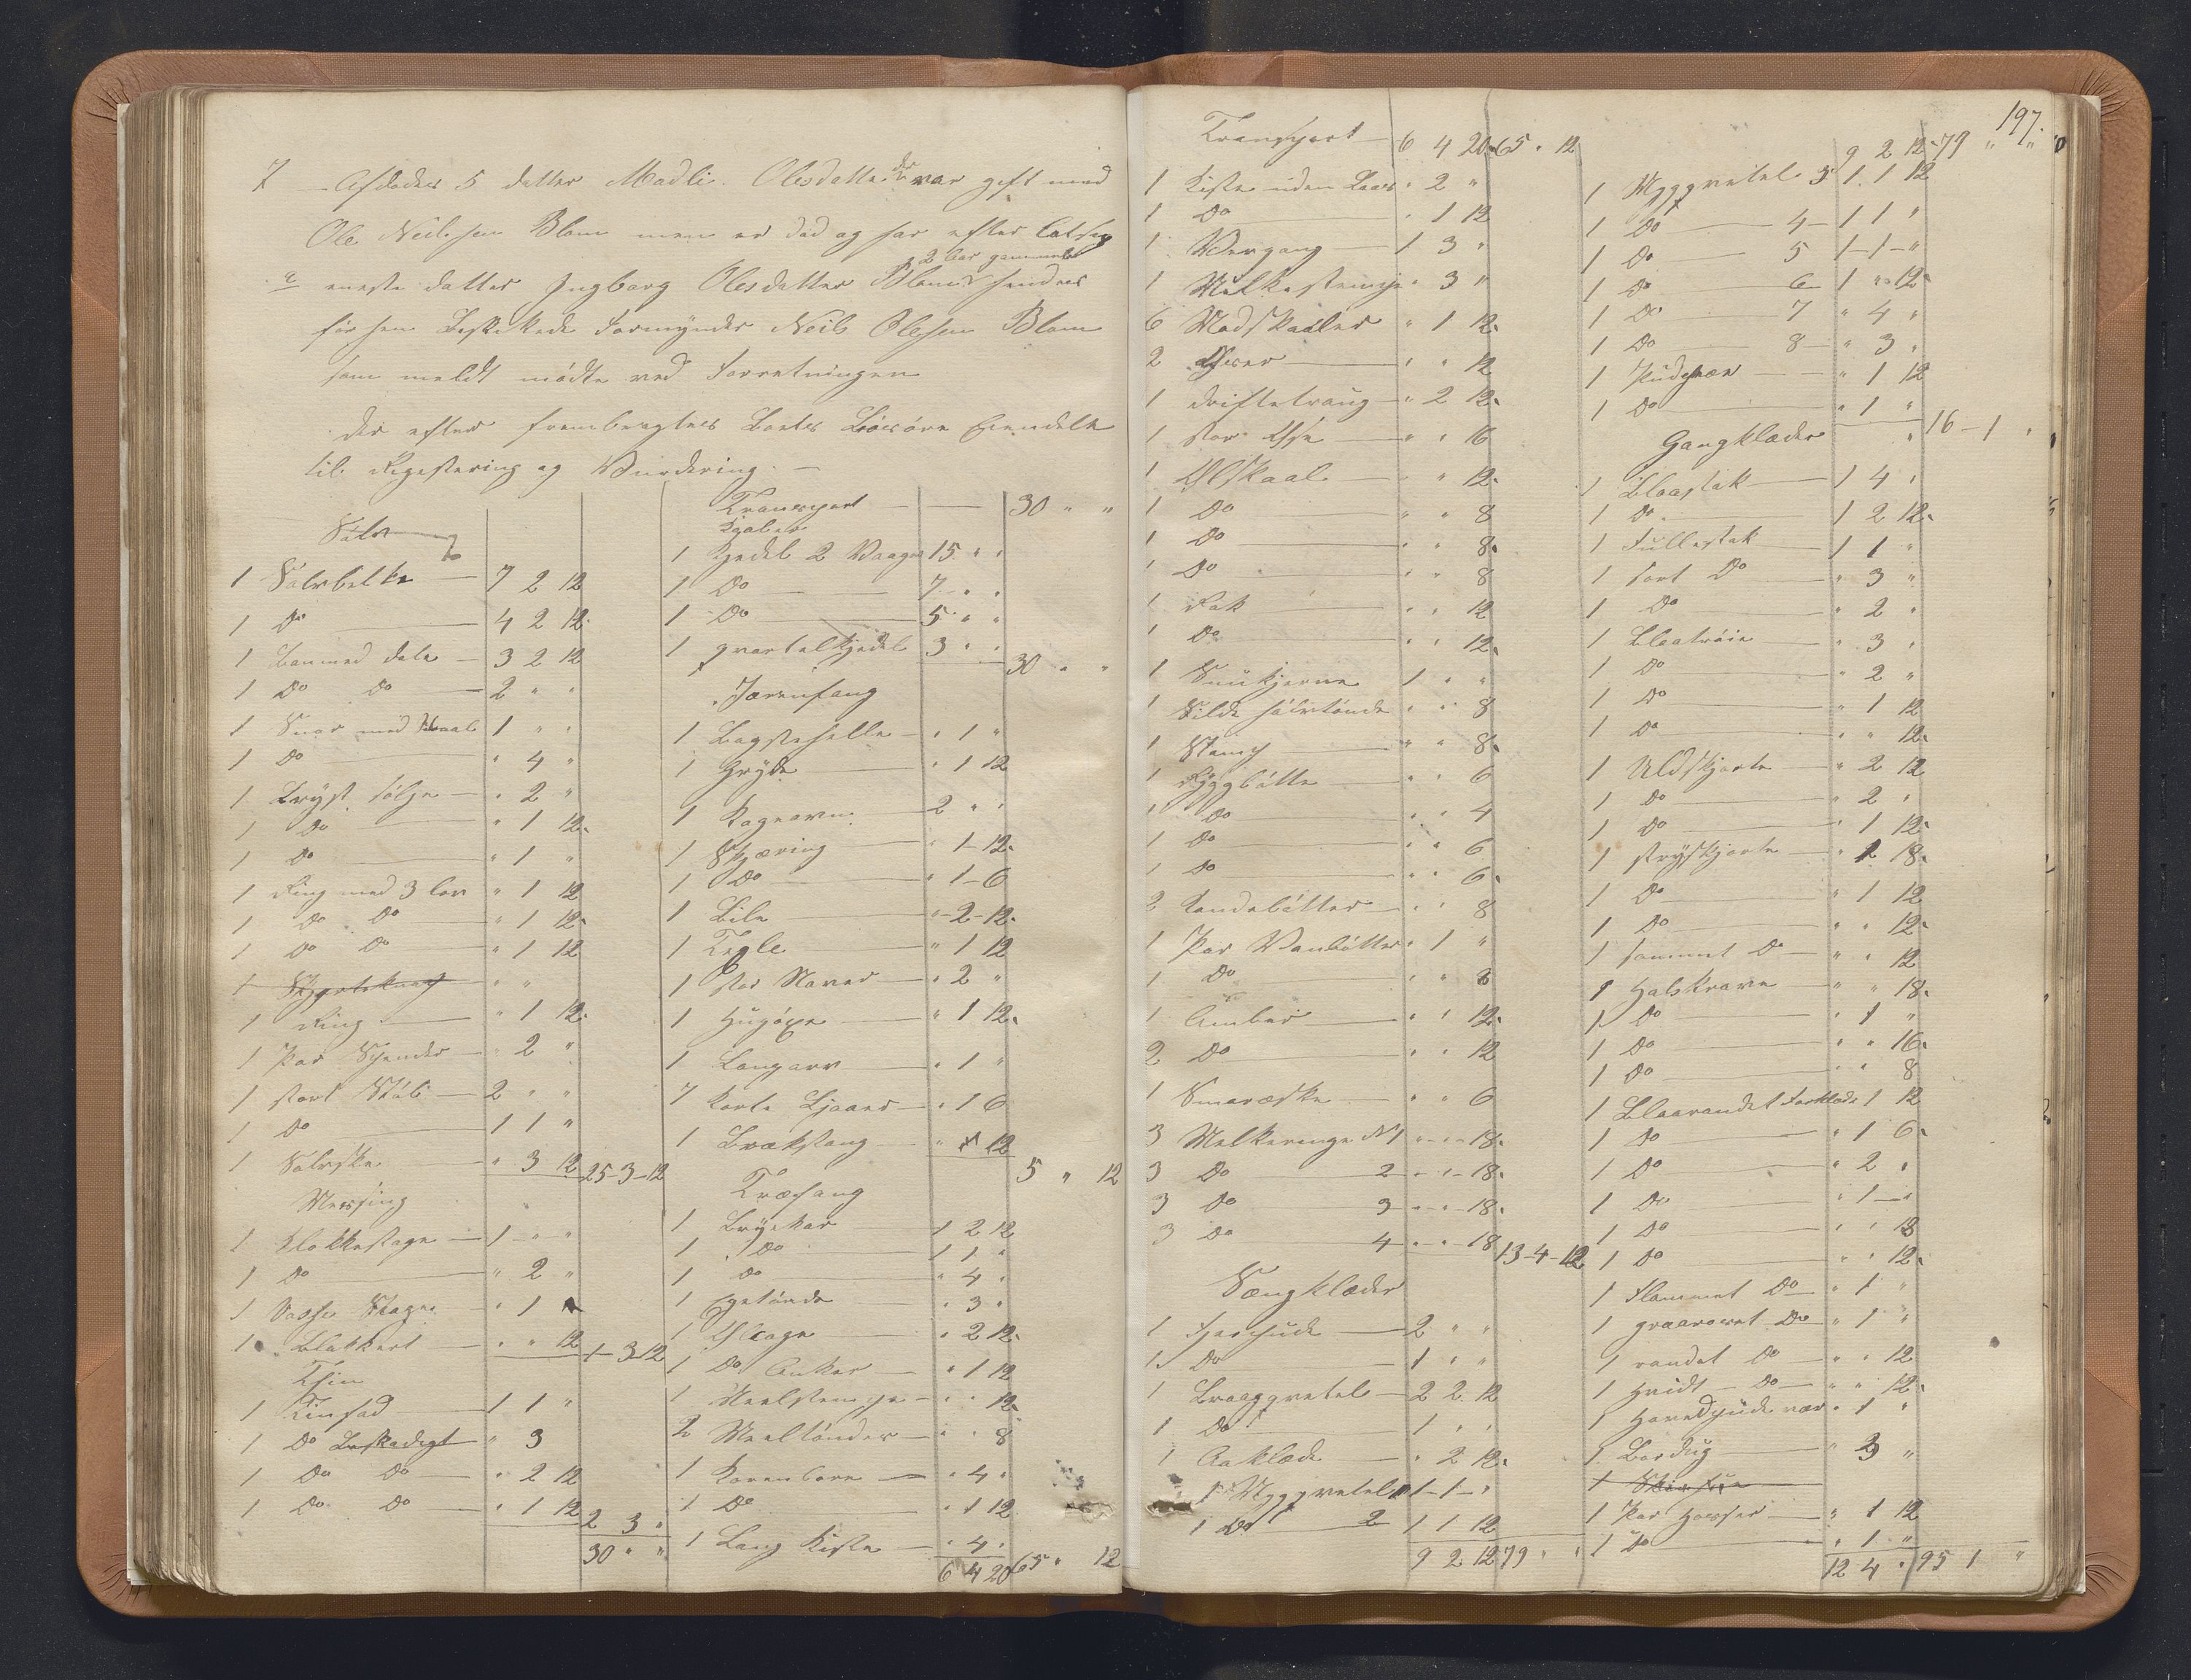 7 Afdødes 5 datter Madli Olesdatter der var gift med
Ole Neilssen Blom men er død og har efter ladt sig
a eneste datter Ingborg Olesdatter Blom 2 Aar gammel hendres
for hen Beskikede Formynder Neils Olessen Blom
som meldt mødte ved Forretningen
der efter frembragtes Boets Løsøre Eiendele
til Registering og Vurdering. —
Sølv
1 Sølvbelte — 7 2 12
1 Do — 4 2 12
1 — 3 2 12
1 Do Do — 2 " "
1 med — 1 " "
1 Do " 4 "
1 Bryst sølge — " 2 "
1 Do — " 1 12
1 Do — " 1 "
1 Ring med 3 løv " 1 12
1 Do Do — " 1 12
1 Do Do — " 1 12
1 " "
1 Ring — " 1 12
1 Par Spender — " 2 "
1 stort Støb — 2 " "
1 Do — 1 1 "
1 Sølvske — " 3 12 25-3-12
Messing
1 Klokkestage — 1 - " "
1 Do — " 2 "
1 Stage — " 1
1 Blakkert — " " 12 1-3-12
Thin
1 Tinfad — 1 1 "
1 Do Beskadigt " 3
1 Do Do — " 2 12
1 Do Do — " 1 12
2 3 "
30 " "
Transport — 30 " "
Kobber
1 Kjedel 2 Vaager 15 " "
1 Do — 7 - " "
1 Do 5 " "
1 qvartelkjedel 3 " "
30 " "
Jærnfang
1 Bagstehelle — " 1 "
1 Gryde — " 1 12
1 Kageovn — 2 " "
1 Skjæring " 1-12
1 Do — " 1-6
1 Bile " 2-12
1 Tegle " 1 12
1 stor Naver — " 2 "
1 Hugøxe " 1 12
1 Langarv — " 1 "
7 korte Ljaaer — " 1 6
1 Brækstang — " 12
5 " 12
Træfang
1 Bryekar 1 2 12
1 Do 1 1 "
1 Do " 4 "
1 Egetønde " 3 "
1 " 2 12
1 Do Anker — " 1 12
1 Meelstempe — " " 12
2 Meeltønder — " " 8
1 Kornbøre — " 4 "
1 Do " 1 12
1 Lang Kiste — " 4 "
6 4 20 65 " 12
197.
Transport — 6 4 20 65 " 12
1 Kiste uden Laas " 2 "
1 Do — " 1 12
1 Vævgang — 1 3 "
1 Melkestempe " 3 "
6 Madskaaler " 1 12
2 — " " 12
1 driftetraug — " 2 12
1 stor — " " 16
1 Ølskaal — " " 12
1 Do — " " 8
1 Do — " " 8
1 Do — " " 8
1 Fak — " " 12
1 Do — " " 12
1 Smukjerne 1 " "
1 Silde halvtønde " " 8
1 Stamp — " " 8
1 Ryggbøtte — " " 6
1 Do " " 4
1 Do " " 6
1 Do — " " 6
2 Vandbøtter — " " 8
1 Par Vanbøtter " 1 "
1 Do — " " 8
1 Amber — " " 12
2 Do — " " 12
1 Smøræske — " " 6
3 Melkeringe N 1 " " 18
3 Do 2 " " 18
3 Do 3 " " 18
3 Do 4 " " 18 13-4-12
Sængklæder
1 Fjerpude — 2 " "
1 Do — 1 " "
1 Braaggvetel — 2 2 12
1 Do 1 " "
1 Aaklæde — " 2 12
1 Myggvetel 1 1 - 1 - "
1 Do 2 1 1 12
9 2 12 79 " "
9 2 12 79 " "
1 Myggvetel 3 1 1 12
1 Do 4 — 1 1 "
1 Do 5 1-1-"
1 Do 6 1 " 12
1 Do 7 " 4 "
1 Do 8 — " 3 "
1 Pudevær — " 1 12
1 Do — " 1 "
16-1 "
Gangklæder
1 Blaastak — 1 4 "
1 Do — 1 2 12
1 Fullestak 1 1 "
1 sort Do — " 3 "
1 Do " 2 "
1 Blaatrøie " 3 "
1 Do — " 2 "
1 Do — " 1 12
1 Do — " " 12
1 Uldskjorte — " 2 12
1 Do — " 2 "
1 Do — " 1 12
1 stryskjorte — " 18
1 Do — " 1 12
1 Do — " " 12
1 sommet Do — " " 12
1 Halskrave — " " 18
1 Do " 1 "
1 Do — " " 16
1 Do — " " 8
1 Blaarandet Forklæde 1 12
1 Do — " 1 6
1 Do — " 2 "
1 Do — " 1 - "
1 Do — " " 18
1 Do — " " 12
1 Flammet Do — " 1 "
1 Do " 1 "
1 randet Do — " " 12
1 Hvidt — Do — " " 12
1 Hovedpude vær " 1 "
1 Bordug — " 3 "
1
1 Par Hosser — " 1 12
1 Do " 1 "
12 4 " 95 1 "